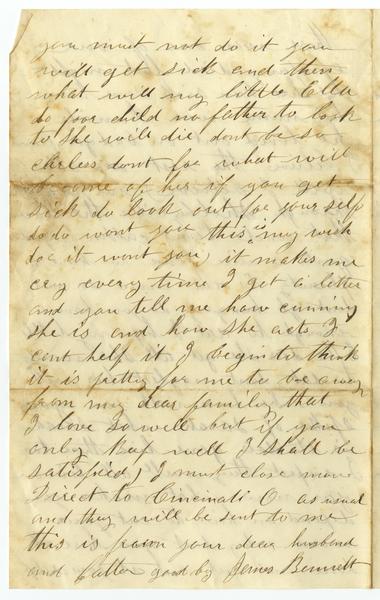 you must not do it you
will get sick and then
what will my little Ella
do poor child no father to look
to she will die dont be so
carless dont for what will
become of her if you get
sick do look out for your self
so do wont you this is my wish
do wont you, it makes me
cry every time I get a letter
and you tell me how cunning
she is and how she acts I
cant help it I begin to think
it is pretty for me to be away
from my dear family that
I love so well but if you
only keep well I shall be
satisfied, I must close now
Direct to Cincinati O as usual
and they will be sent to me
this is from your dear husband
and father good by James Bennett